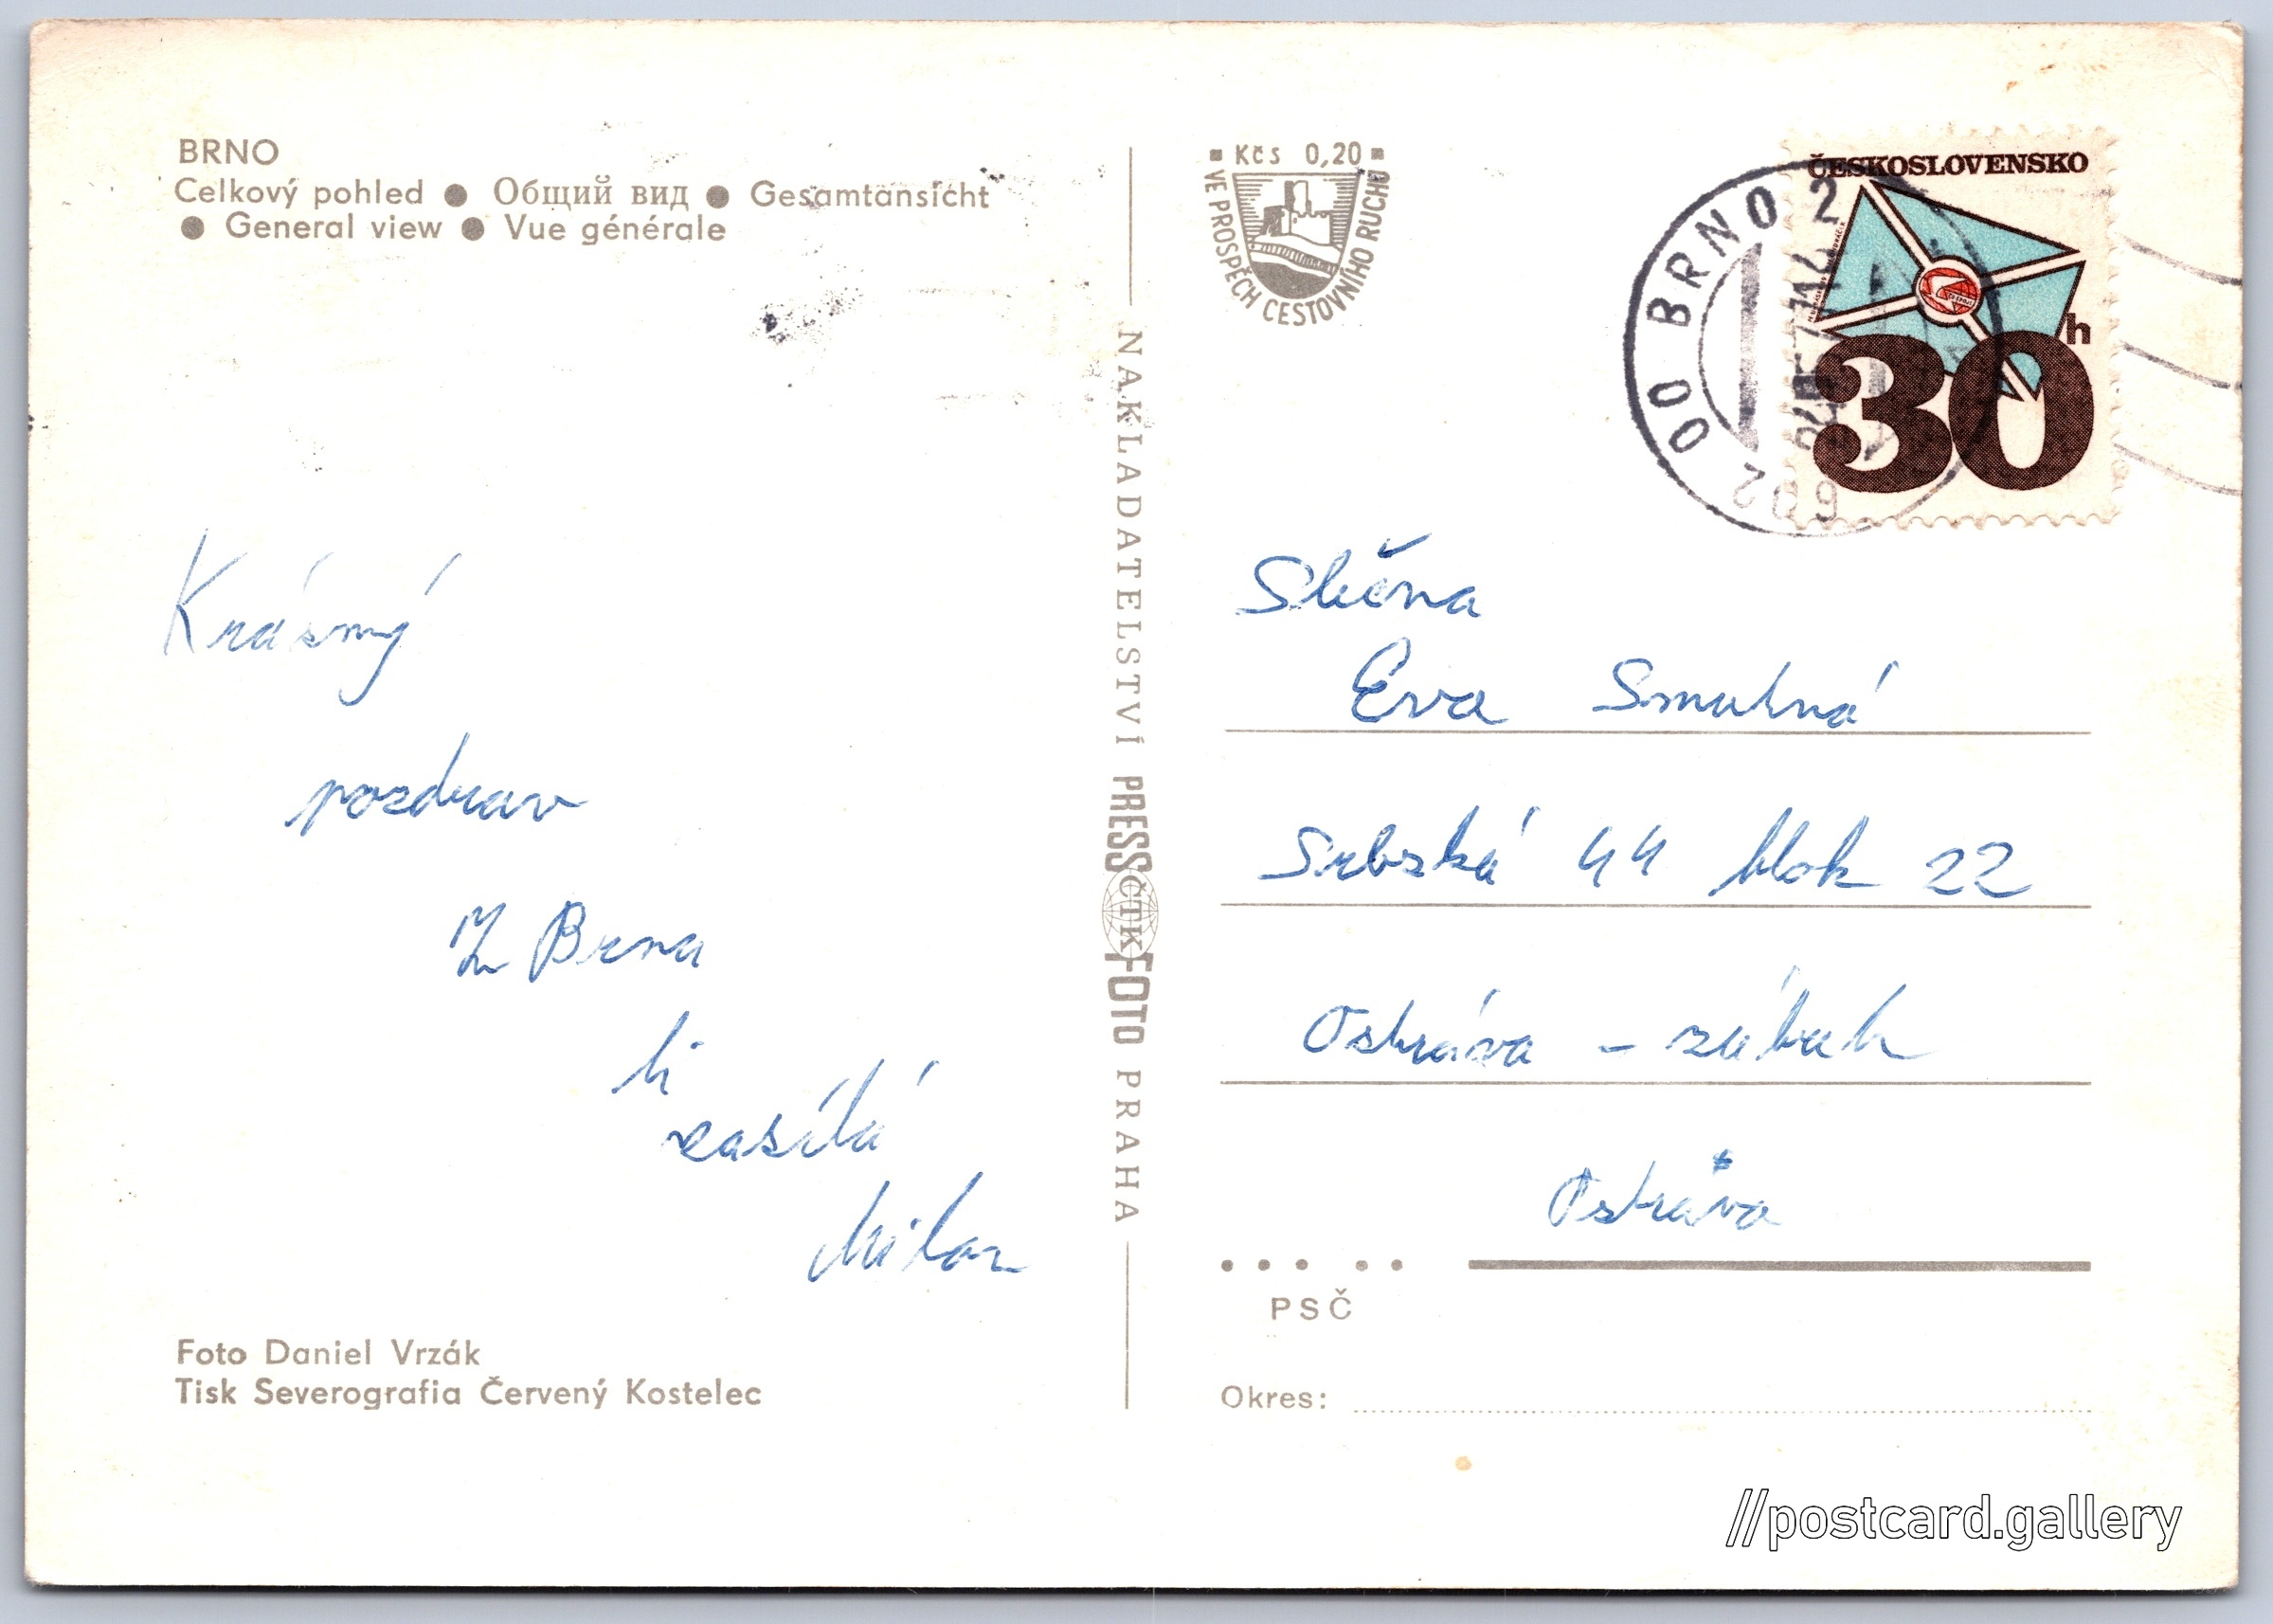 BRNO
Celkový pohled ● Общий вид ● Gesamtansicht
● General view ● Vue générale
Krásný
pozdrav
Z Brna
ti
zasílá
Milan
Foto Daniel Vrzák
Tisk Severografia Červený Kostelec
NAKLADATELSTVÍ PRESSFOTO PRAHA
ČTK
Kčs 0,20
VE PROSPĚCH CESTOVNÍHO RUCHU
ČESKOSLOVENSKO
30 h
602 00 BRNO 2
Slečna
Eva Smutná
Srbská 44 blok 22
Ostráva - zábřeh
Ostráva
PSČ
Okres:
//postcard.gallery